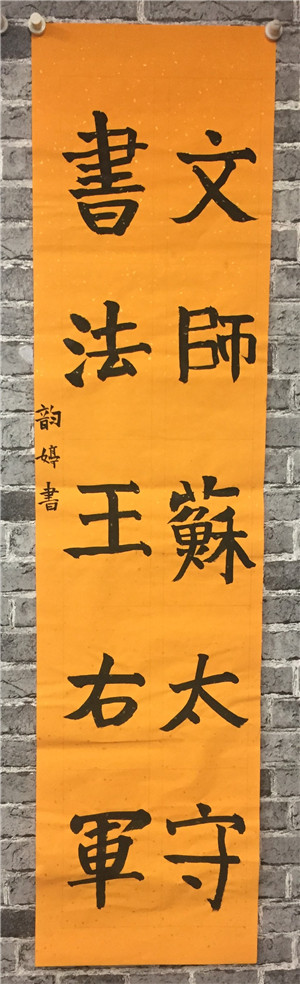 文師蘇太守
書法王右軍
韵婷書